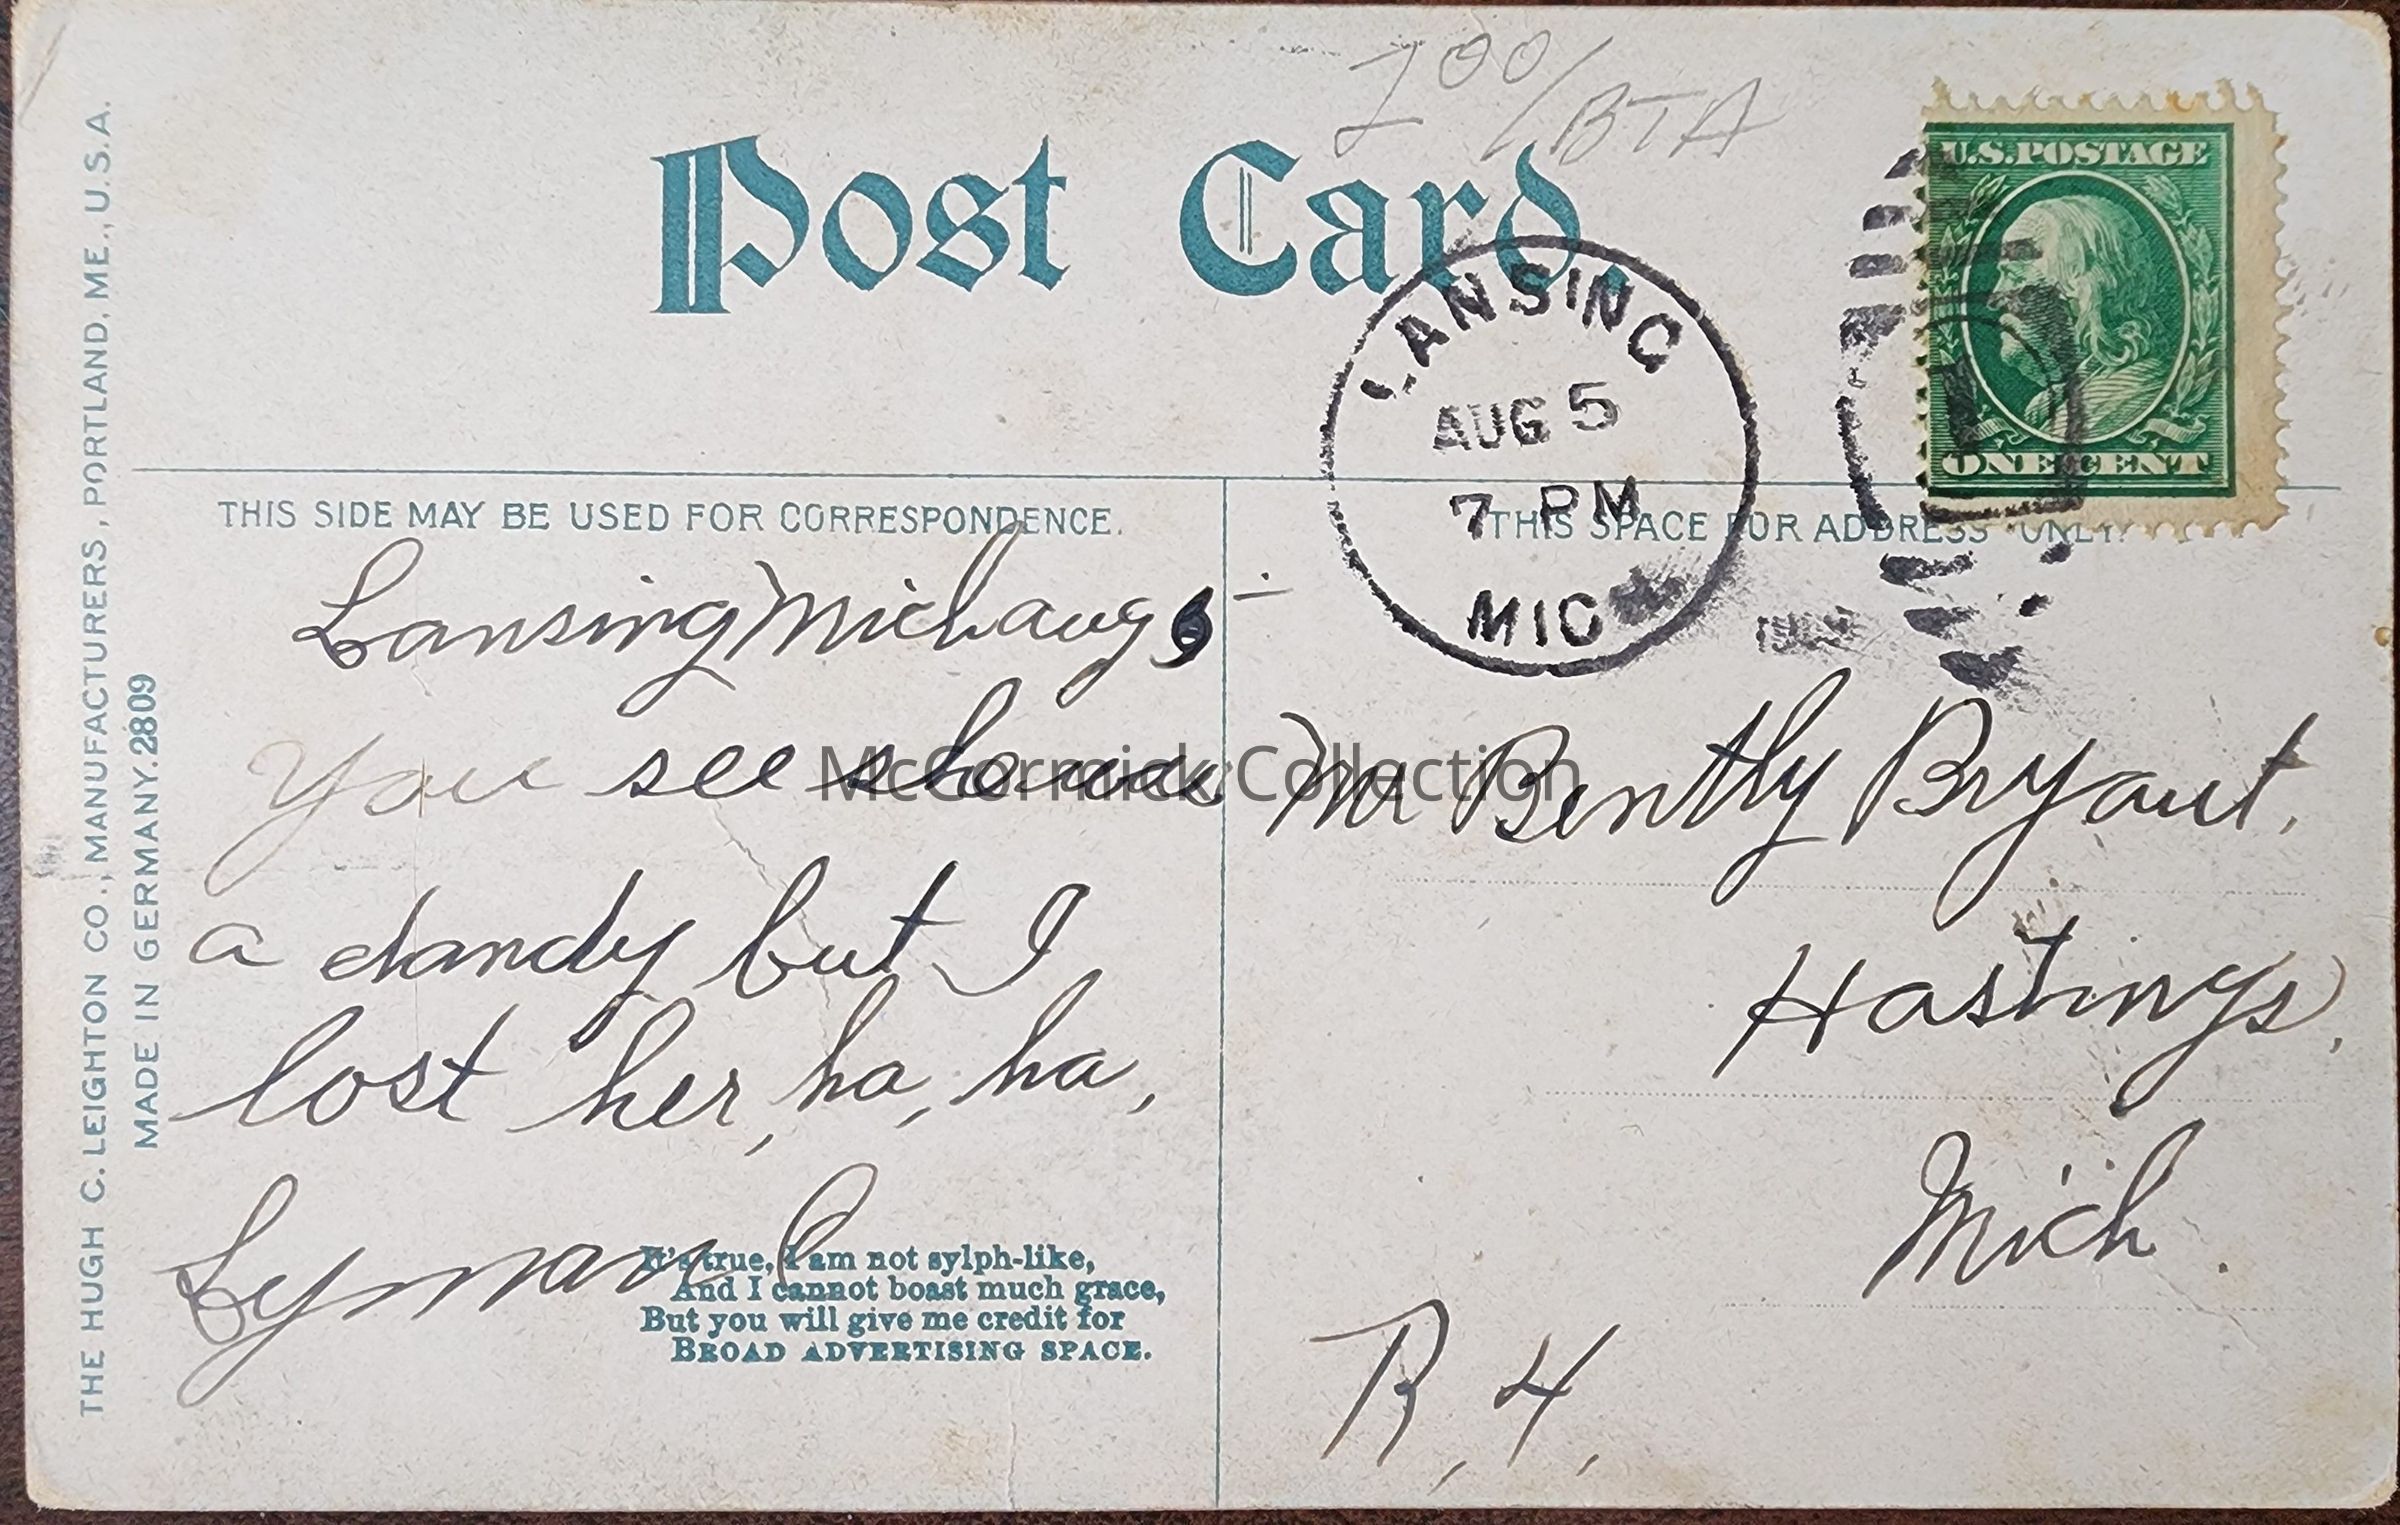 200/BTA
Post Card.
U.S.POSTAGE
ONE CENT
LANSING
AUG 5
7 PM
MIC
THE HUGH C. LEIGHTON CO., MANUFACTURERS, PORTLAND, ME., U.S.A.
MADE IN GERMANY. 2809
THIS SIDE MAY BE USED FOR CORRESPONDENCE.
Lansing Mich aug
You see she was
a dandy but I
lost her, ha, ha,
Lyman
It's true, I am not sylph-like,
And I cannot boast much grace,
But you will give me credit for
BROAD ADVERTISING SPACE.
THIS SPACE FOR ADDRESS ONLY.
Mr Bently Bryant.
Hastings,
Mich.
R, 4,
McCormick Collection